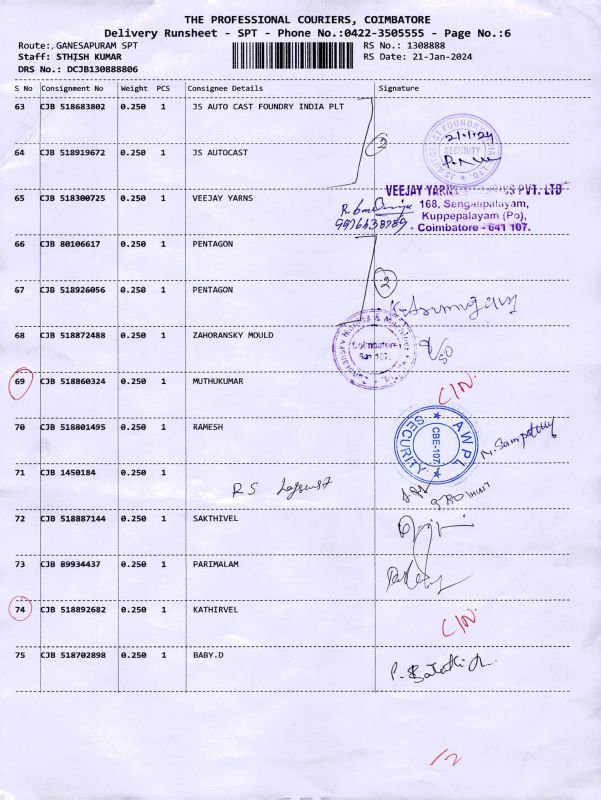 THE PROFESSIONAL COURIERS, COIMBATORE
Delivery Runsheet - SPT - Phone No.:0422-3505555 - Page No.:6
Route: GANESAPURAM SPT
RS No.: 1308888
Staff: STHISH KUMAR
RS Date: 21-Jan-2024
DRS No.: DCJB130888806
S No Consignment No Weight PCS Consignee Details Signature
63 CJB 518683802 0.250 1 JS AUTO CAST FOUNDRY INDIA PLT
21/1/24
SECURITY
2
64 CJB 518919672 0.250 1 JS AUTOCAST
65 CJB 518300725 0.250 1 VEEJAY YARNS
VEEJAY YARNS PVT. LTD
168, Sengalipalayam,
Kuppepalayam (Po),
Coimbatore - 641 107.
66 CJB 80106617 0.250 1 PENTAGON
67 CJB 518926056 0.250 1 PENTAGON
2
68 CJB 518872488 0.250 1 ZAHORANSKY MOULD
Coimbatore
641 107.
69 CJB 518860324 0.250 1 MUTHUKUMAR
C/N.
70 CJB 518801495 0.250 1 RAMESH
AWPL
CBE-107
SECURITY
N. Sampath
71 CJB 1450184 0.250 1
RS
72 CJB 518887144 0.250 1 SAKTHIVEL
73 CJB 89934437 0.250 1 PARIMALAM
74 CJB 518892682 0.250 1 KATHIRVEL
C/N.
75 CJB 518702898 0.250 1 BABY.D